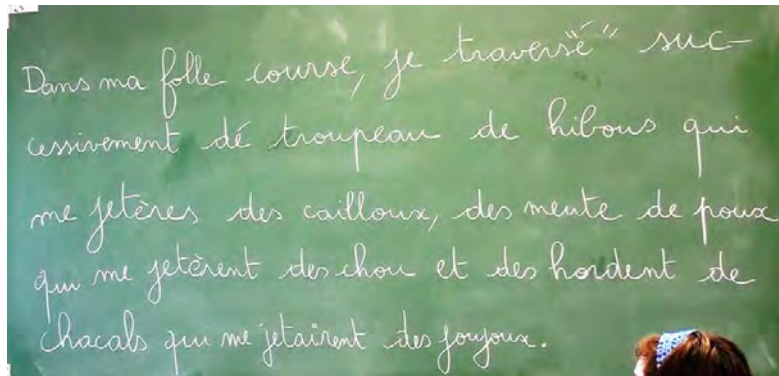 Dans ma folle course, je traversé " suc-
cessivement dé troupeau de hibous qui
me jetères des cailloux, des meute de poux
qui me jetèrent des chou et des hordent de
chacals qui me jetairent des joujoux.